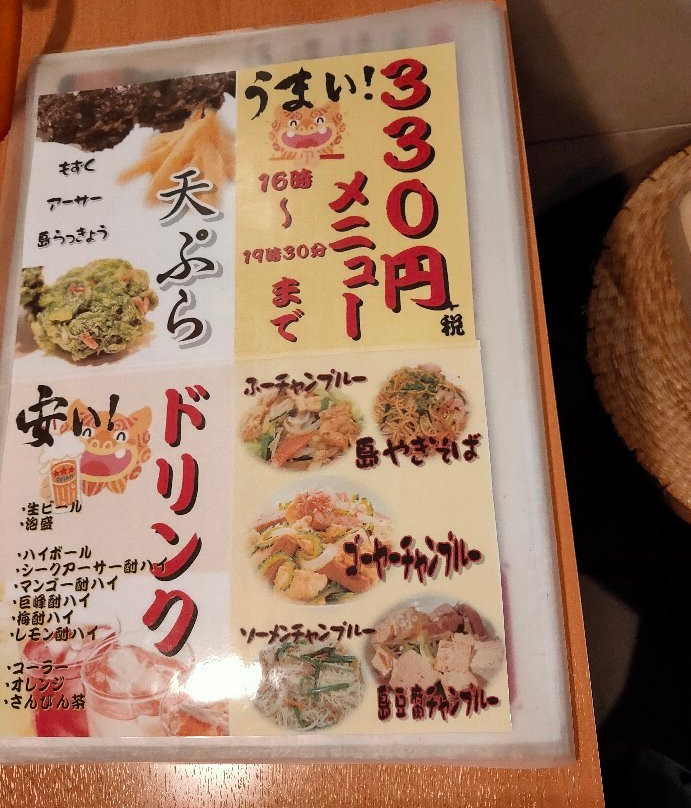 うまい!
330円
+税
メニュー
16時
〜
19時30分
まで
天ぷら
もずく
アーサー
島らっきょう
フーチャンプルー
島やきそば
ゴーヤーチャンプルー
ソーメンチャンプルー
島豆腐チャンプルー
安い!
ドリンク
・生ビール
・泡盛
・ハイボール
・シークアーサー酎ハイ
・マンゴー酎ハイ
・巨峰酎ハイ
・梅酎ハイ
・レモン酎ハイ
・コーラー
・オレンジ
・さんぴん茶